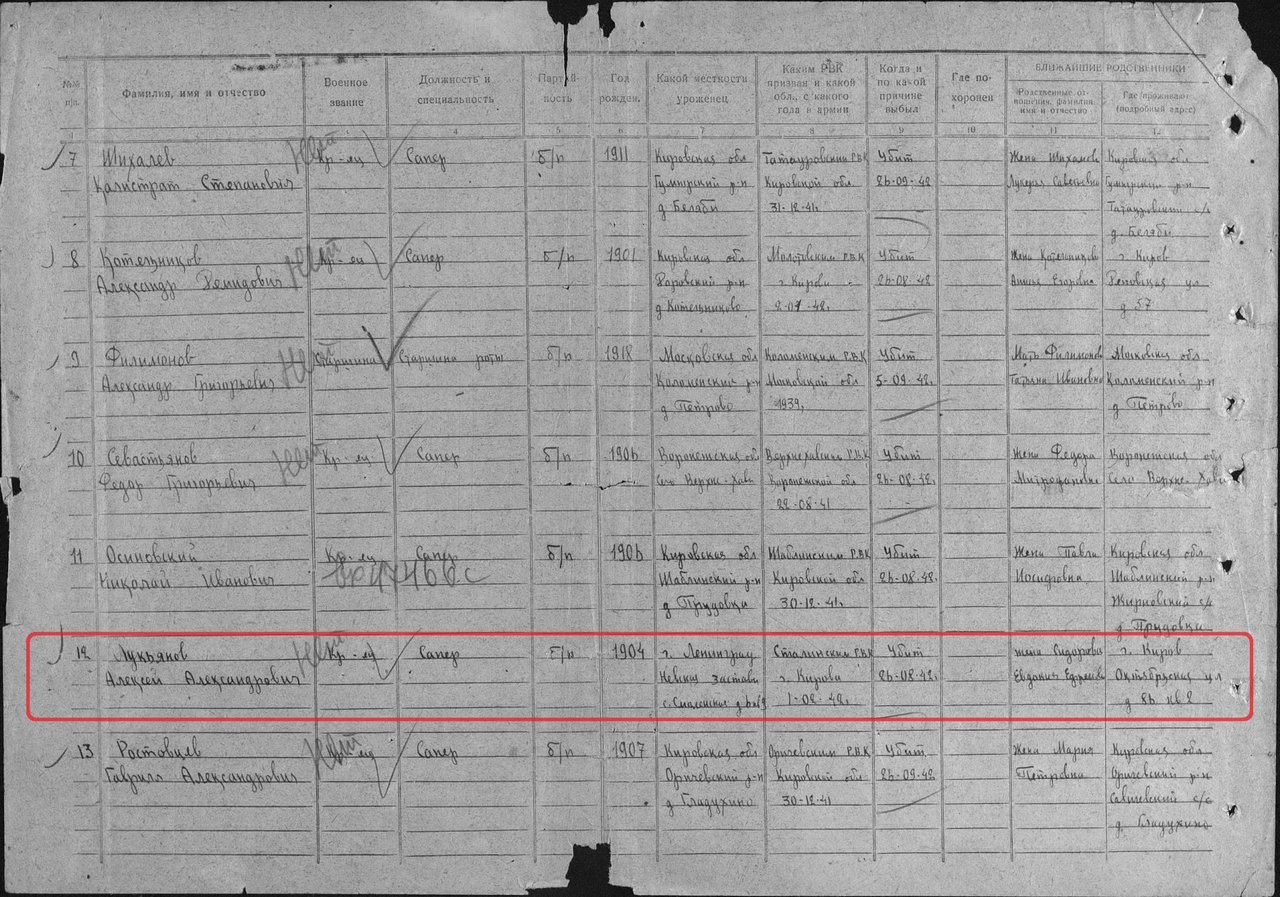 №№ п/п.
Фамилия, имя и отчество
Военное звание
Должность и специальность
Партий- ность
Год рожден.
Какой местности уроженец
Каким РВК призван и какой обл., с какого года в армии
Когда и по какой причине выбыл
Где по- хоронен
БЛИЖАЙШИЕ РОДСТВЕННИКИ
Родственные от- ношения, фамилия имя и отчество
Где проживают (подробный адрес)
1 4 5 6 7 8 9 10 11 12
7 Шихалев Кр-ец Сапер б/п 1911 Кировская обл Татауровским РВК Убит Жена Шихалева Кировская обл
Калистрат Степанович р-н Кировской обл 26-09-42 р-н
д Беляби 31-12-41г. Татауровский с/с
д. Беляби
8 Котельников Кр-ец Сапер б/п 1901 Кировская обл Молотовским РВК Убит Жена Котельникова г. Киров
Александр Демидович р-н г. Кирова 26-08-42 Егоровна ул
д Котельниково 2-07-42г. д 57
9 Филимонов Старшина Старшина роты б/п 1918 Московская обл Коломенским РВК Убит Мать Филимонова Московская обл
Александр Григорьевич Коломенский р-н Московской обл 5-09-42. Татьяна Ивановна Коломенский р-н
д Петрово 1939г д Петрово
10 Севастьянов Кр-ец Сапер б/п 1906 Воронежская обл Верхнехавским РВК Убит Жена Федора Воронежская обл
Федор Григорьевич Село Верхне-Хава Воронежской обл 26-08-42. Митрофановна Село Верхне-Хава
22-08-41
11 Осиновский Кр-ец Сапер б/п 1906 Кировская обл Шаблинским РВК Убит Жена Павла Кировская обл
Николай Иванович Шаблинский р-н Кировской обл 26-08-42. Иосифовна Шаблинский р-н
д Прудовцы 30-12-41г. Жирновский с/с
д Прудовцы
12 Лукьянов Кр-ец Сапер б/п 1904 г. Ленинград Сталинским РВК Убит жена Сидорова г. Киров
Алексей Александрович Невская застава г. Кирова 26-08-42. Евдокия Октябрьская ул
с. Смоленское 1-02-42г. д 86 кв 2
13 Ростовцев Сапер б/п 1907 Кировская обл Оричевским РВК Убит Жена Мария Кировская обл
Гаврил Александрович Оричевский р-н Кировской обл 26-09-42 Петровна Оричевский р-н
д Гладухино 30-12-41 с/с
д. Гладухино